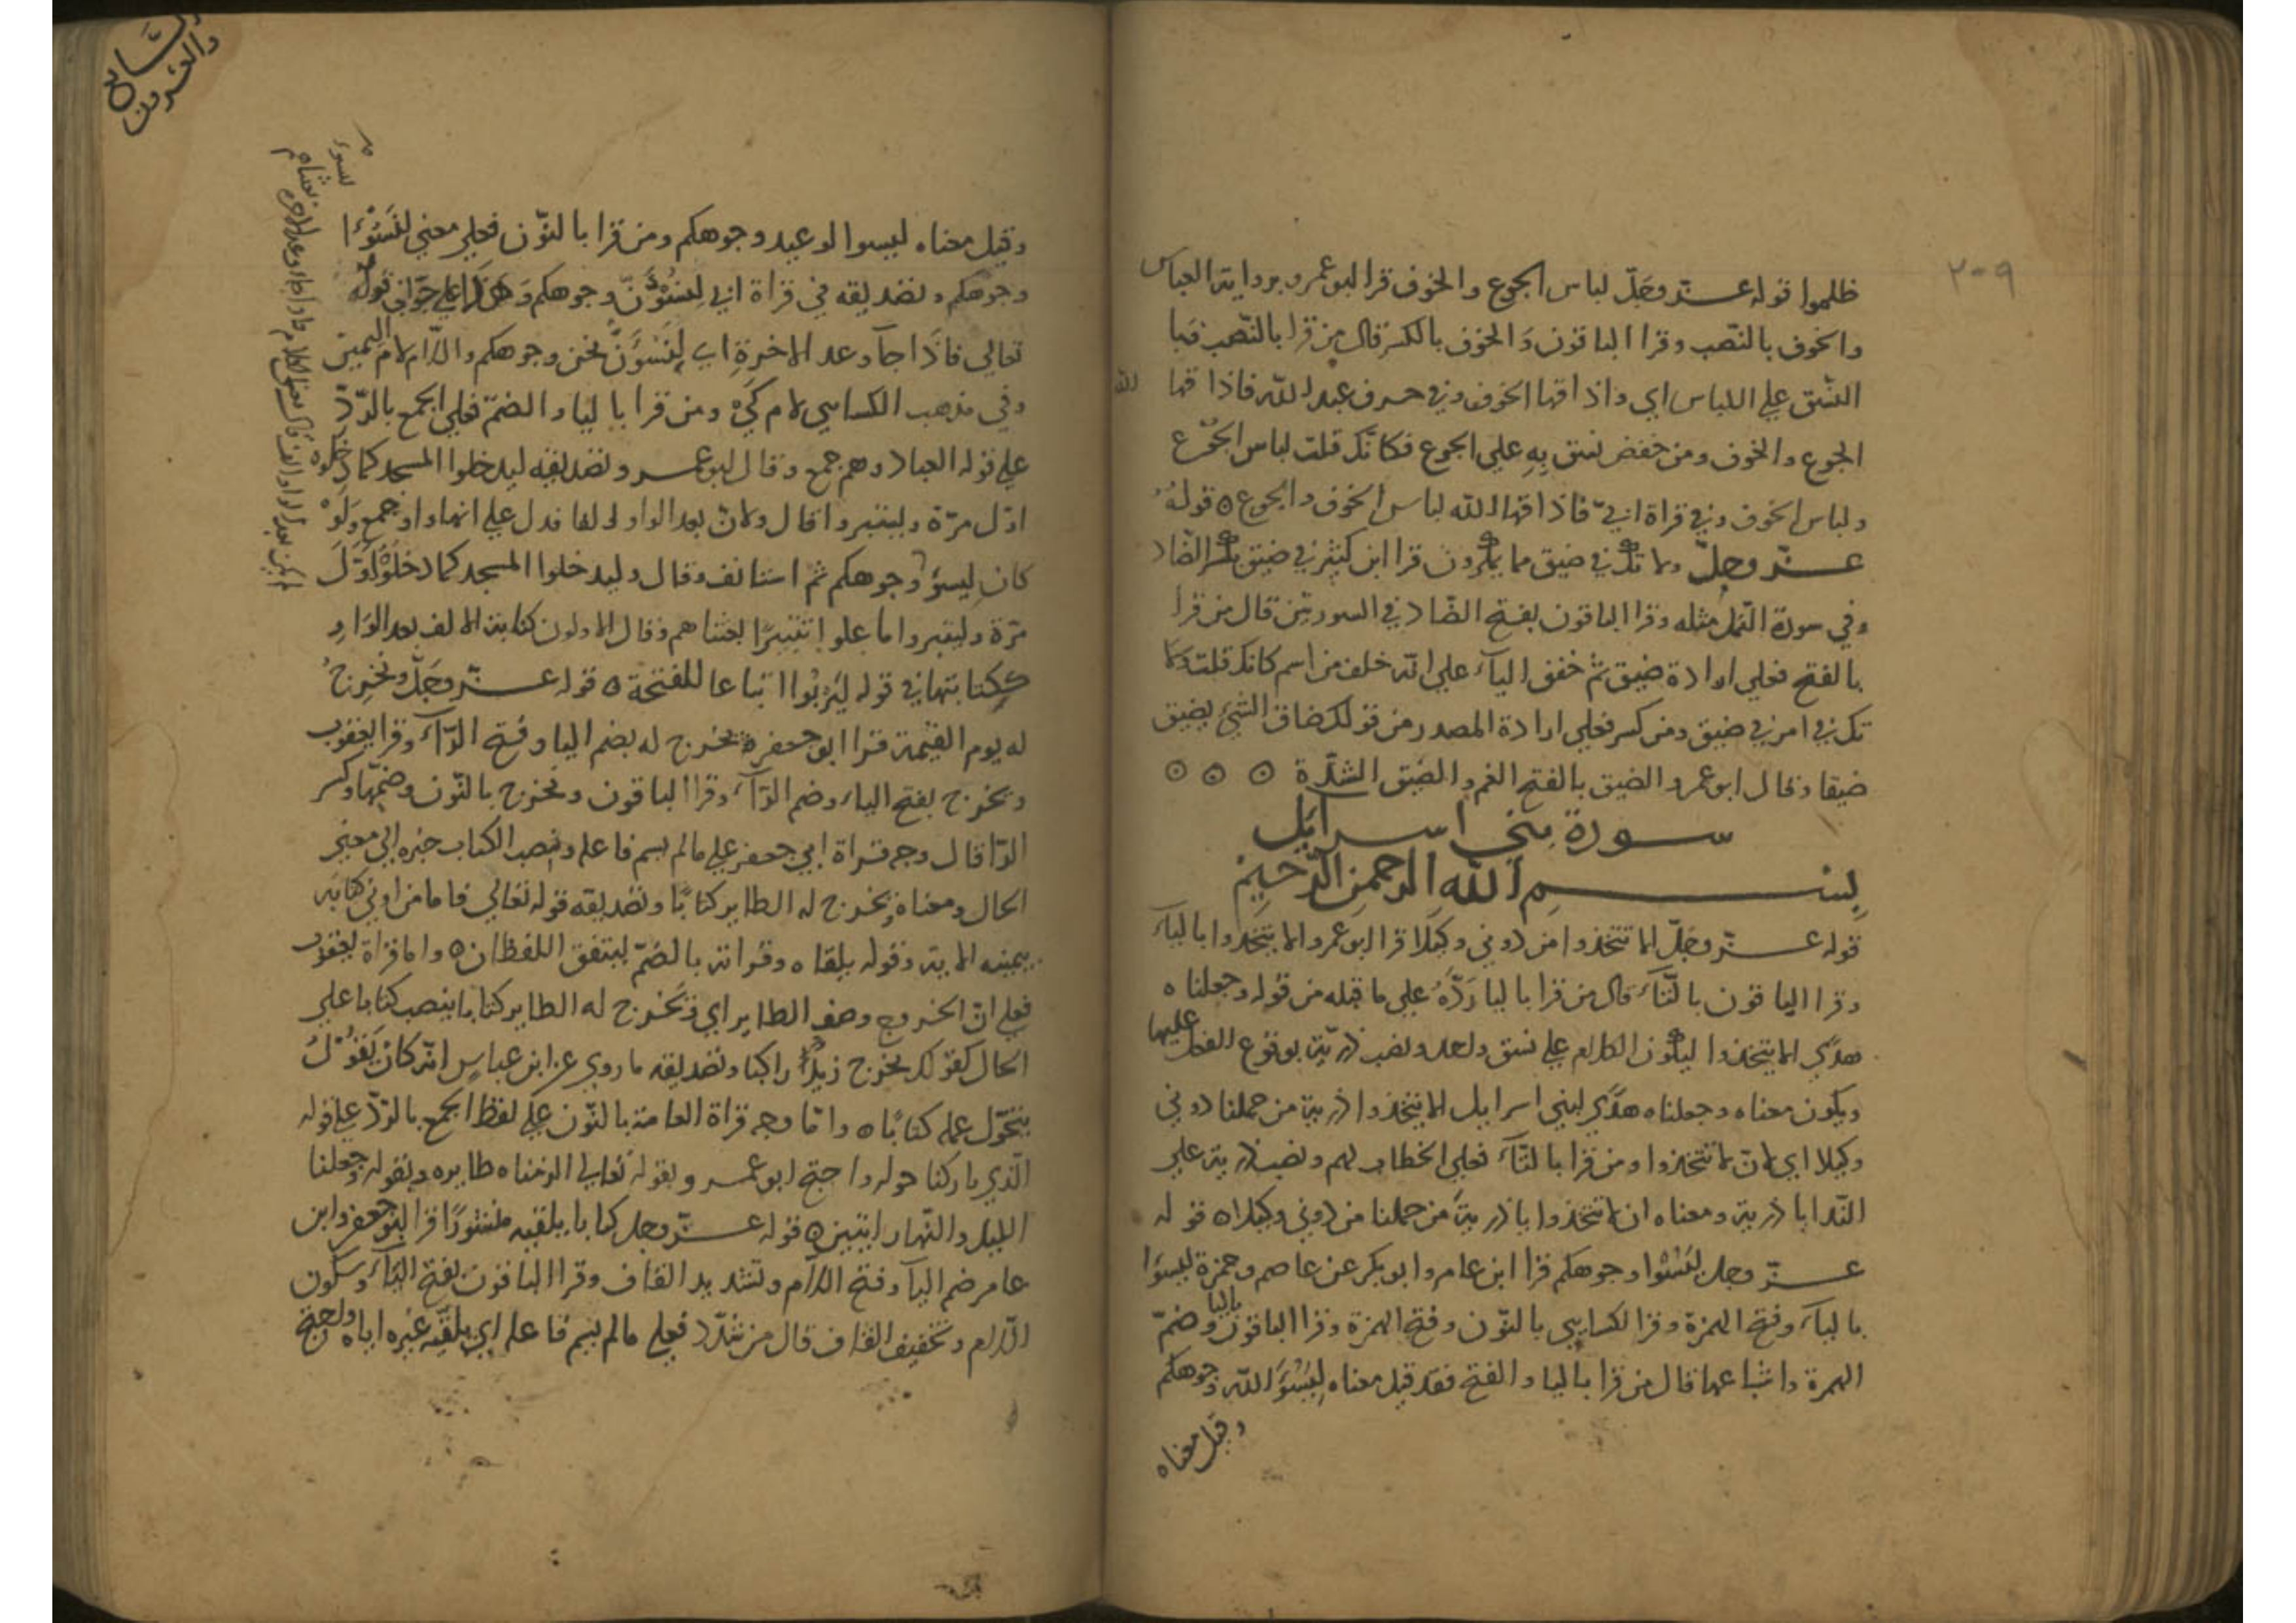 ٢٠٩
ظلموا قوله عز وجل لباس الجوع والخوف قرا ابو عمرو برواية العباس
والخوف بالنصب وقرا الباقون والخوف بالكسر قال من قرا بالنصب فبا
النسق علي اللباس اي واذاقها الخوف وفي حرف عبد الله فاذاقها الله
الجوع والخوف ومن خفض نسق به علي الجوع فكانك قلت لباس الجوع
ولباس الخوف وفي قراة ابي فاذاقها الله لباس الخوف والجوع ه قوله
عز وجل ولا تك في ضيق مما يمكرون قرا ابن كثير في ضيق بكسر الضاد
وفي سورة النمل مثله وقرا الباقون بفتح الضاد في السورتين قال من قرا
بالفتح فعلي ارادة ضيق ثم خفف الياء علي انه خلف من اسم كانك قلت ولا
تك في امر في ضيق ومن كسر فعلي ارادة المصدر من قولك ضاق الشيء يضيق
ضيقا وقال ابو عمرو الضيق بالفتح الغم والضيق الشدة ⊙ ⊙ ⊙
سورة بني اسرايل
بسم الله الرحمن الرحيم
قوله عز وجل الا تتخذوا من دوني وكيلا قرا ابو عمرو الا يتخذوا بالياء
وقرا الباقون بالتاء قال من قرا باليا رده علي ما قبله من قوله وجعلناه
هدي الا يتخذوا ليكون الكلام علي نسق واحد ونصب ذرية بوقوع الفعل عليها
ويكون معناه وجعلناه هدي لبني اسرايل الا يتخذوا ذرية من حملنا دوني
وكيلا اي لان لا تتخذوا ومن قرا بالتاء فعلي الخطاب لهم ونصب ذرية علي
الندا يا ذرية ومعناه ان لا تتخذوا يا ذرية من حملنا من دوني وكيلا ه قوله
عز وجل ليسئوا وجوهكم قرا ابن عامر وابو بكر عن عاصم وحمزة ليسوا
بالياء وفتح الهمزة وقرا الكسايي بالنون وفتح الهمزة وقرا الباقون باليا وضم
الهمزة واشباعها قال من قرا باليا والفتح فقد قيل معناه ليسوء الله وجوهكم
وقيل معناه
السابع
والعشرون
وقيل معناه ليسوا لوعيد وجوهكم ومن قرا بالنون فعلي معني لنسوءا
وجوهكم وتصديقه في قراة ابي لنسوءن وجوهكم وهذا علي جواب قوله
تعالي فاذا جاء وعد الاخرة اي لنسوءن نحن وجوهكم واللام لام اليمين
وفي مذهب الكسايي لام كي ومن قرا باليا والضم فعلي الجمع بالرد
علي قوله العباد وهم جمع وقال ابو عمرو وتصديقه ليدخلوا المسجد كما دخلوه
اول مرة وليتبروا قال ولان بعد الواو الفا فدل علي انها واو جمع ولو
كان ليسوء وجوهكم ثم استانف وقال وليدخلوا المسجد كما دخلوه اول
مرة وليتبروا ما علوا تتبيرا بعثناهم وقال الاولون كتابة الالف بعد الواو
ككتابتها في قوله ليربوا اتباعا للفتحة ه قوله عز وجل ونخرج
له يوم القيمة قرا ابو جعفر يخرج له بضم اليا وفتح الراء وقرا يعقوب
ويخرج بفتح الياء وضم الراء وقرا الباقون ونخرج بالنون وضمها وكسر
الرا قال وجه قراة ابي جعفر علي ما لم يسم فاعله ونصب الكتاب خبره الي معني
الحال ومعناه ويخرج له الطاير كتابا وتصديقه قوله تعالي فاما من اوتي كتابه
بيمينه الاية وقوله يلقاه وقراته بالضم ليتفق اللفظان ه واما قراة يعقوب
فعلي ان الخروج وصف الطاير اي ويخرج له الطاير كتابا ينصب كتابا علي
الحال كقولك يخرج زيد راكبا وتصديقه ما روي عن ابن عباس انه كان يقول
يتحول عمله كتابا ه واما وجه قراة العامة بالنون علي لفظ الجمع بالرد علي قوله
الذي باركنا حوله واحتج ابو عمرو بقوله تعالي الزمناه طايره وبقوله وجعلنا
الليل والنهار ايتين ه قوله عز وجل كتابا يلقيه منشورا قرا ابو جعفر وابن
عامر ضم الياء وفتح اللام وتشديد القاف وقرا الباقون بفتح الياء وسكون
اللام وتخفيف القاف قال من شدد فعلي ما لم يسم فاعله اي يلقيه غيره اياه واحتج